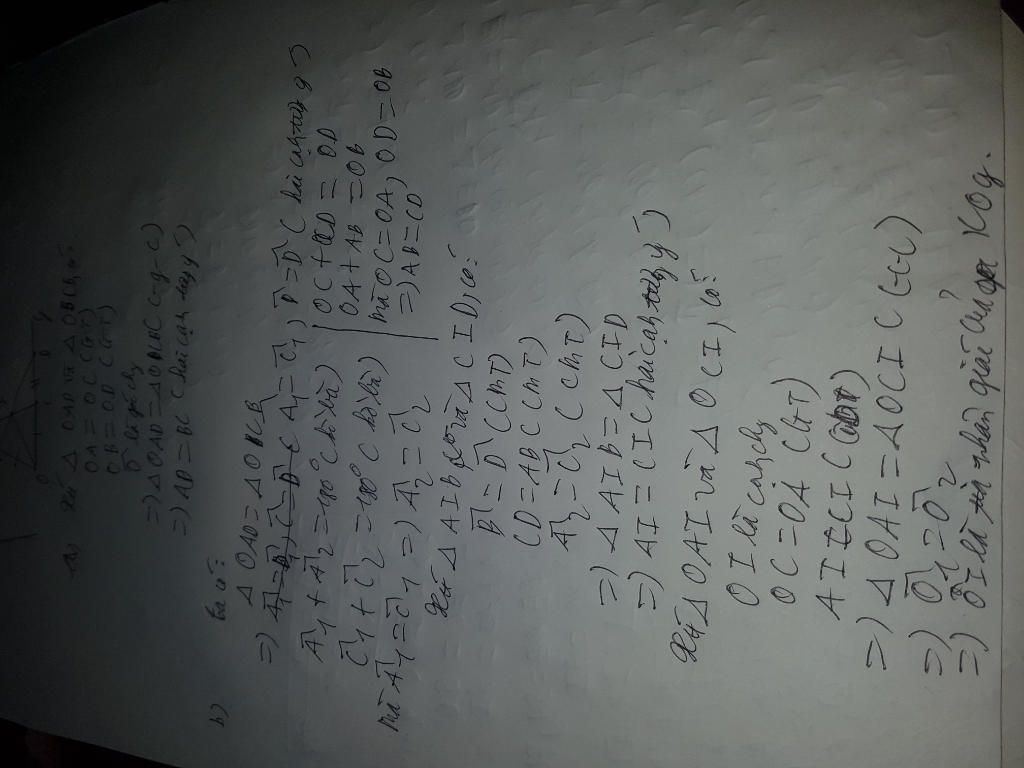 a) Xét △ OAD và △ OBC, có:
OA = OC (GT)
OB = OD (GT)
O chung
=) △ OAD = △ OCB (c-g-c)
=) AD = BC (hai cạnh tứ)
b) ta có:
△ OAD = △ OCB
=) A1 = C1, B = D (hai cạnh tứ)
A1 + A2 = 180° (kề bù)
C1 + C2 = 180° (kề bù)
mà A1 = C1 =) A2 = C2
OC + CD = OD
OA + AB = OB
mà OC = OA, OD = OB
=) AB = CD
Xét △ AIB và △ CID, có:
B = D (CMT)
CD = AB (CMT)
A2 = C2 (CMT)
=) △ AIB = △ CID
=) AI = CI (hai cạnh)
Xét △ OAI và △ OCI, có:
OI là cạnh
OC = OA (GT)
AI = CI (CMT)
=) △ OAI = △ OCI (c-c-c)
=) O1 = O2
=) OI là phân giác của xOy.